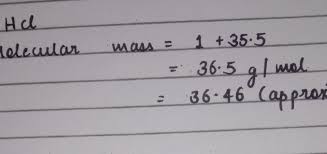 HCl
olecular mass = 1 + 35.5
= 36.5 g/mol
= 36.46 (approx